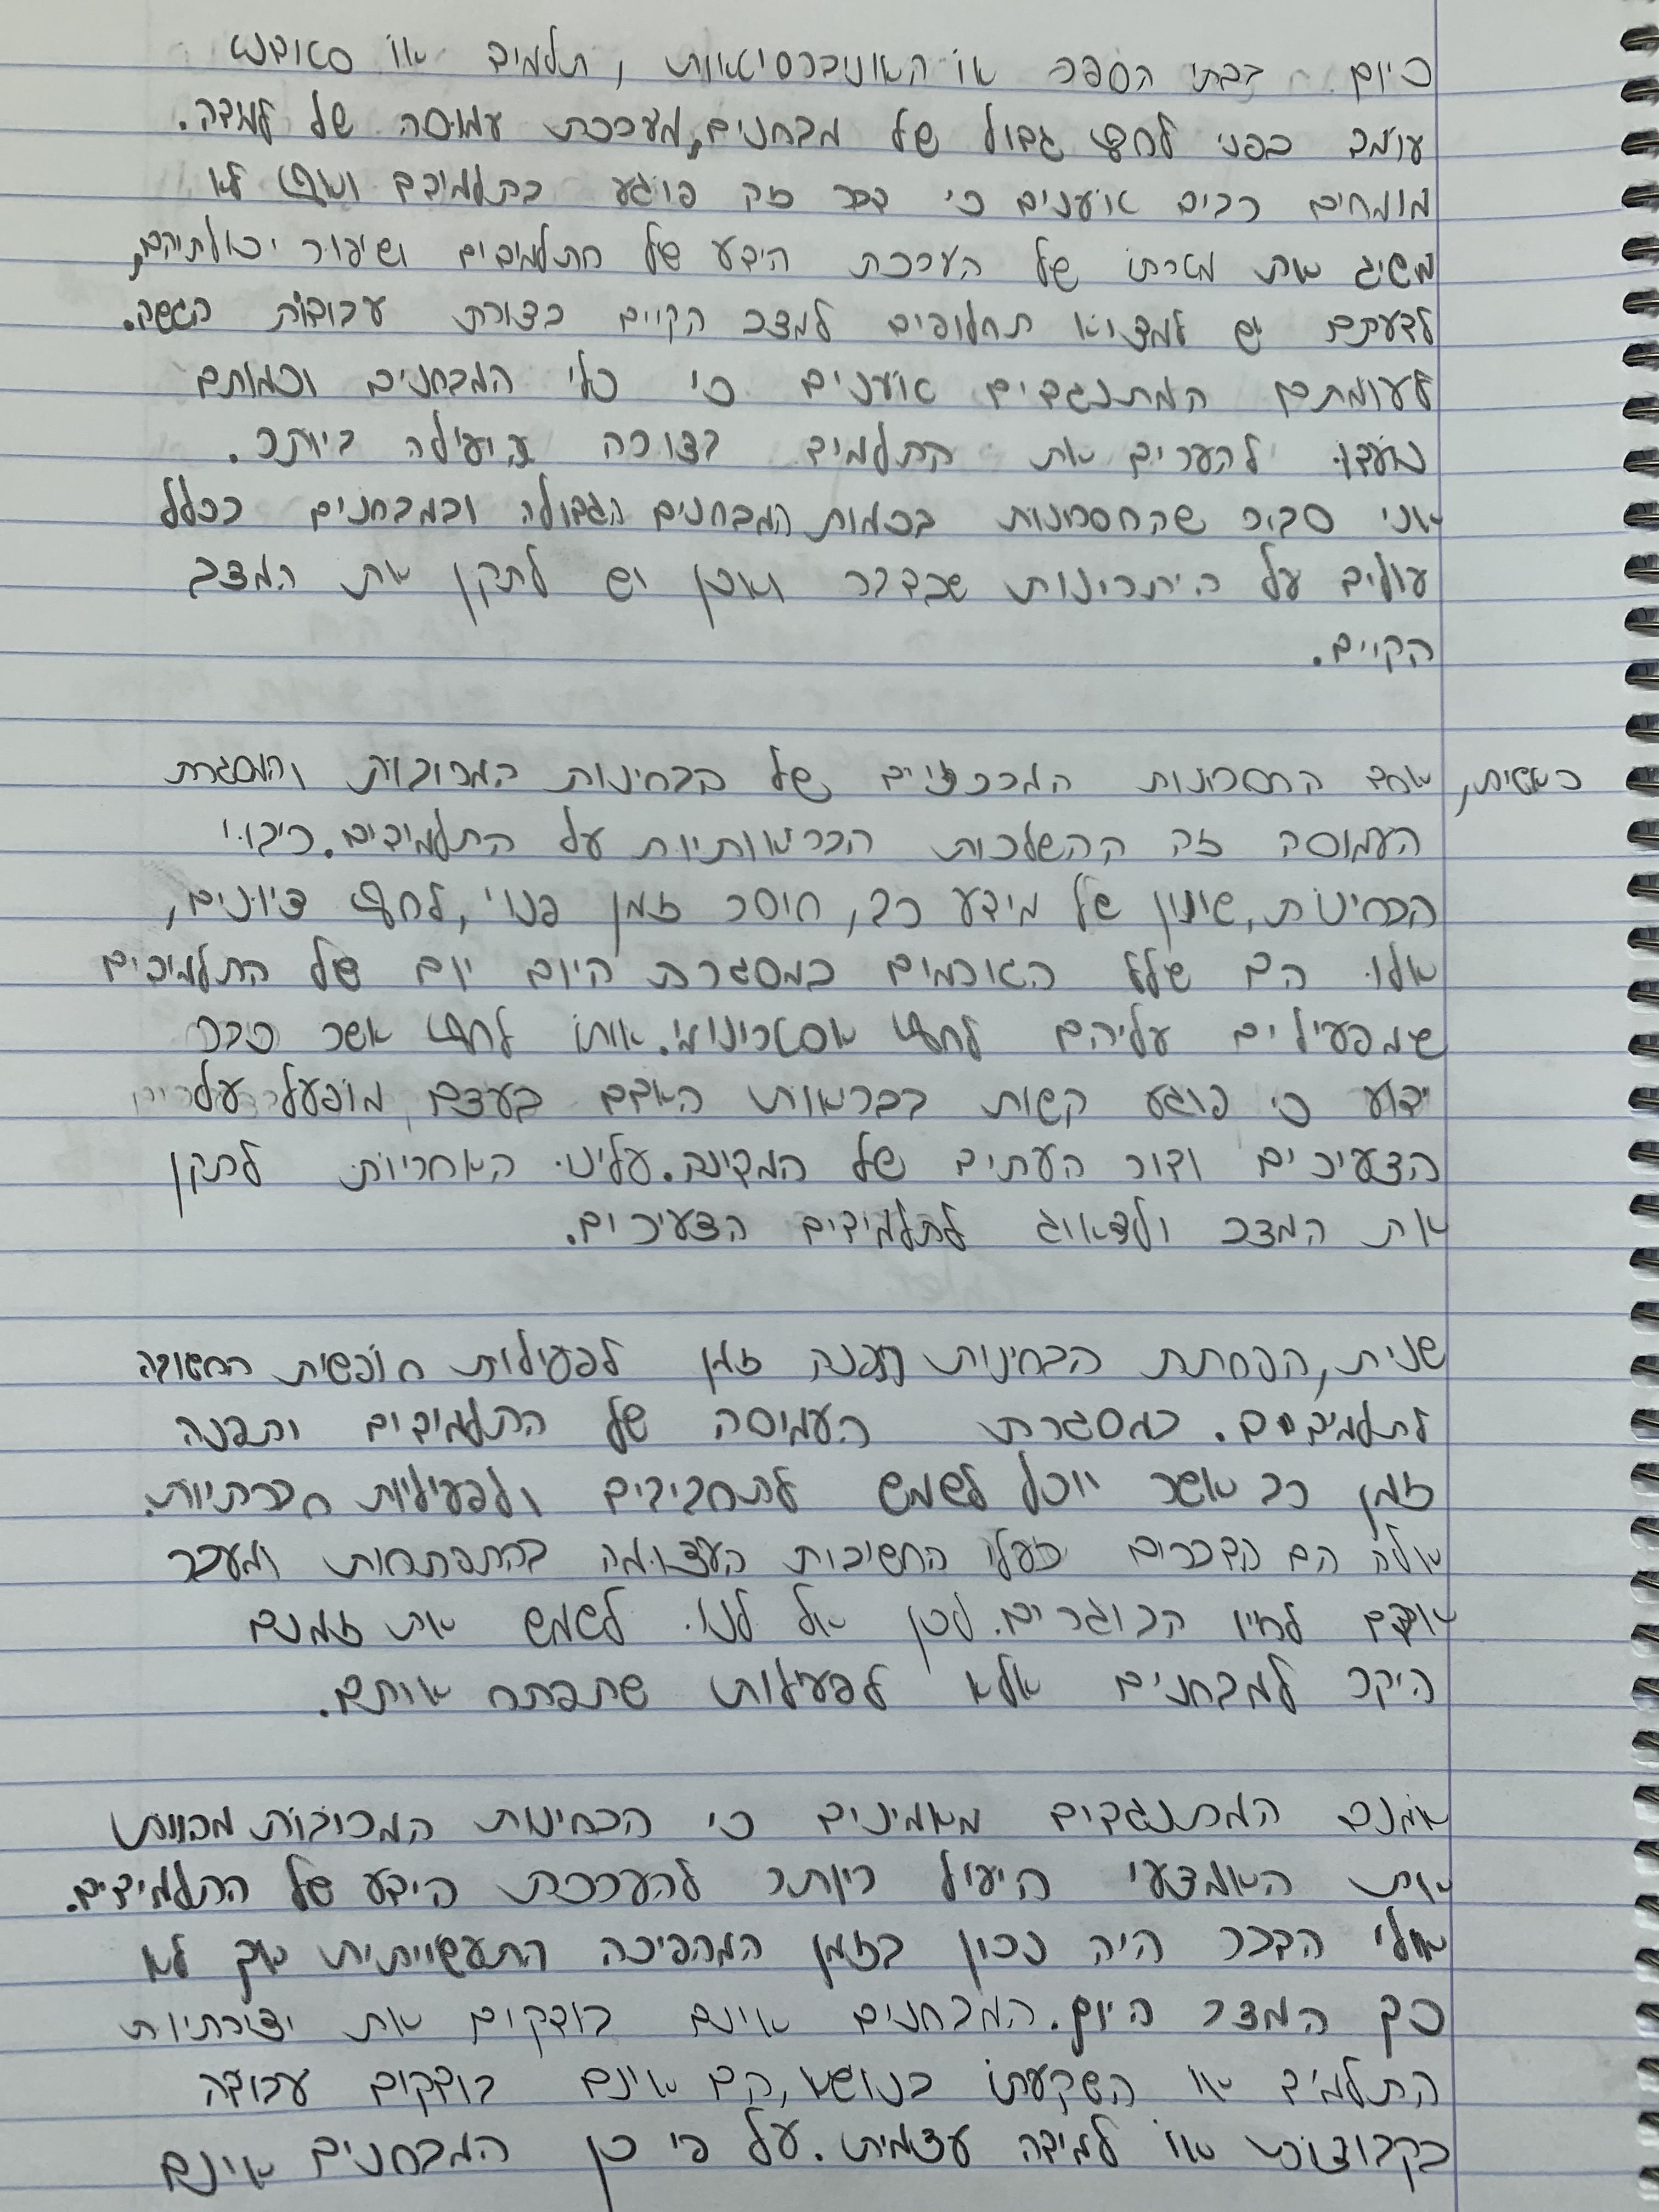 כיום בבתי הספר או האוניברסיטאות, תלמיד או סטודנט
עומד בפני לחץ גבול של מבחנים, מערכת עמוסה של למידה.
מומחים רבים טוענים כי דבר זה פוגע בתלמידים ואף לא
משיג את מטרתו של הערכת הידע של התלמידים ושיפור יכולתיהם,
לדעתם יש למצוא תחלופים למצב הקיים בצורת עבודות הגשה.
לעומתם המתנגדים טוענים כי כלי המבחנים וכמותם
נועדו להעריך את התלמיד בצורה היעילה ביותר.
אני סבור שהחסרונות בכמות המבחנים הגדולה ובמבחנים בכלל
עולים על היתרונות שבדבר ואכן יש לתקן את המצב
הקיים.
ראשית, אחד החסרונות המרכזיים של הבחינות המרובות והמסגרת
העמוסה זה ההשלכות הבריאותיות על התלמידים. ריבוי
הבחינות, שינון של מידע רב, חוסר זמן פנוי, לחץ ציונים,
אלו הם שלל הגורמים במסגרת היום יום של התלמידים
שמפעילים עליהם לחץ אסטרונומי. אותו לחץ אשר כבר
ידוע כי פוגע קשות בבריאות האדם בעצם מופעל על
הצעירים ודור העתיד של המדינה. עלינו האחריות לתקן
את המצב ולדאוג לתלמידים הצעירים.
שנית, הפחתת הבחינות תפנה זמן לפעילות חופשית החשובה
לתלמידים. במסגרת העמוסה של התלמידים יתפנה
זמן רב אשר יוכל לשמש לתחביבים ולפעילויות חברתיות.
אלה הם הדברים בעלי החשיבות העצומה בהתפתחות ומעבר
אותם לחיי הבוגרים. לכן אל לנו לשמש את זמנם
היקר למבחנים אלא לפעילות שתפתח אותם.
אמנם המתנגדים מאמינים כי הבחינות המרובות מהוות
את האמצעי היעיל ביותר להערכת הידע של התלמידים.
אולי הדבר היה נכון בזמן המהפיכה התעשייתית אך לא
כך המצב היום. המבחנים אינם בודקים את יצירתיות
התלמיד או השקעתו בנושא, הם אינם בודקים עבודה
בקבוצות או למידה עצמית. על פי כן המבחנים אינם